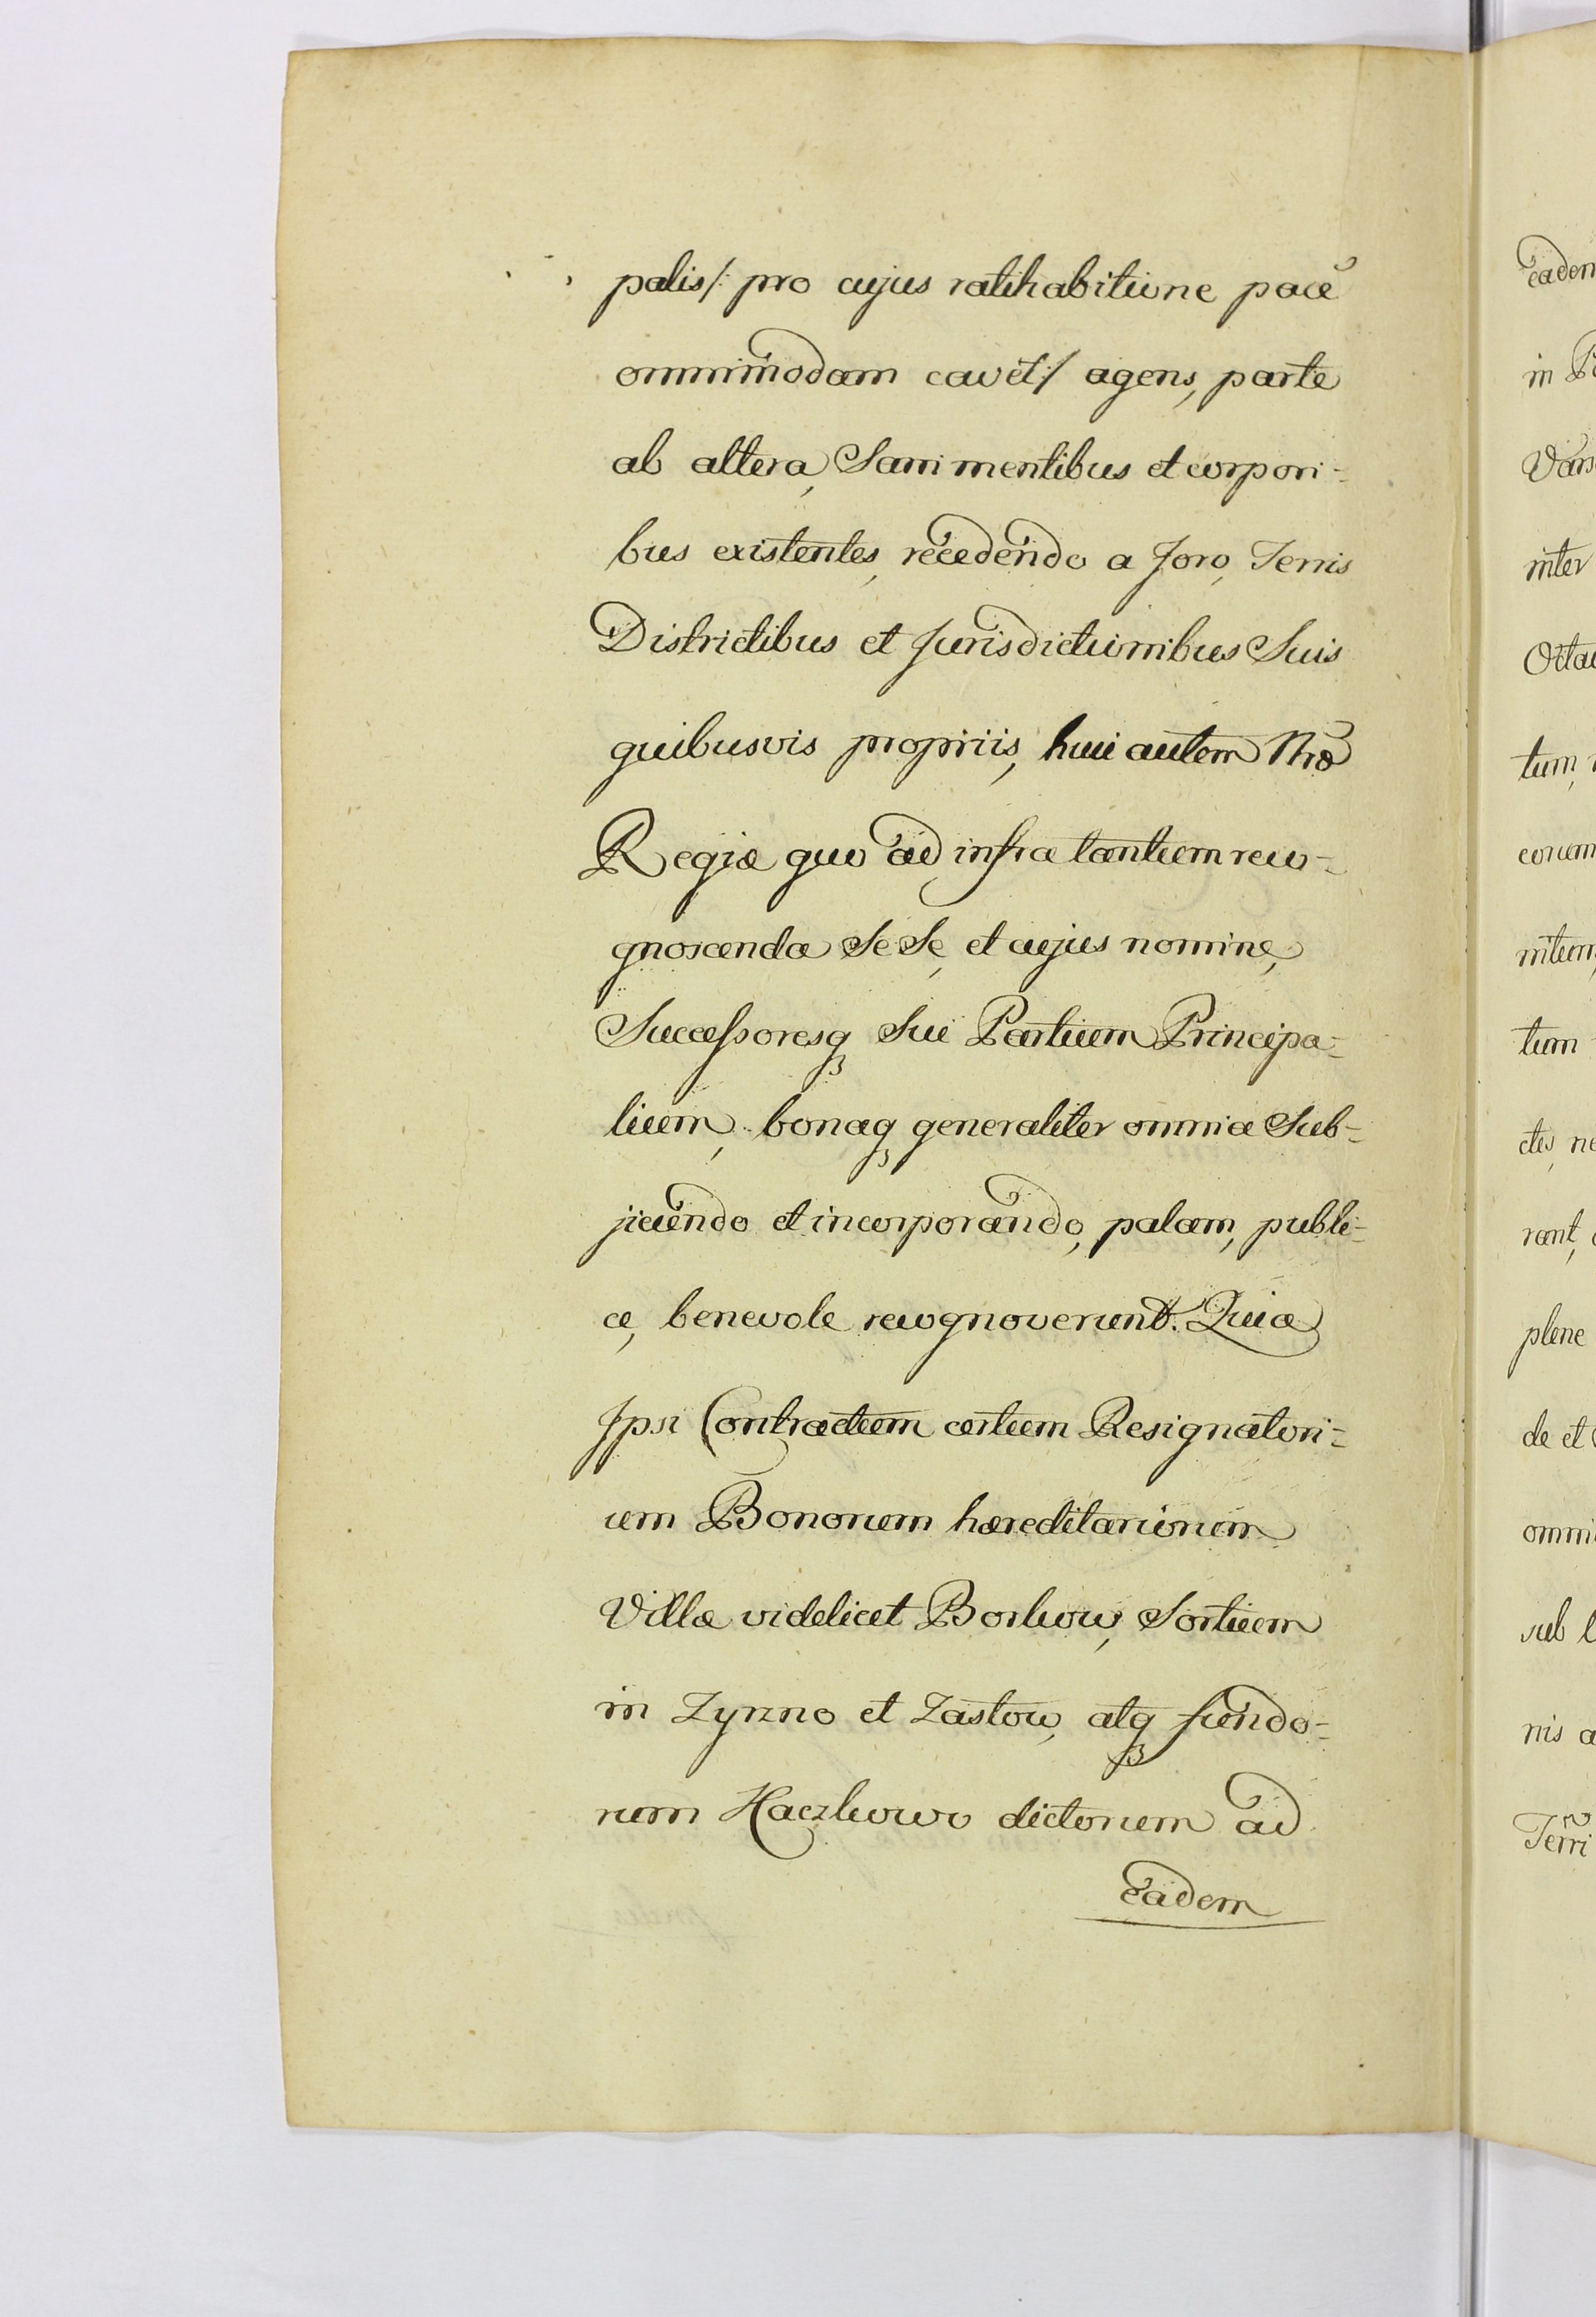 palis/: pro cujus ratihabitione pace
omnimodam cavet:/ agens, parte
ab altera, Sani mentibus et corpori-
bus existentes, recedendo a Foro, Terris
Districtibus et Jurisdictionibus Suis
quibusvis propriis, huic autem Nrõ
Regiæ quo ad infra tantum reco-
gnoscenda Se Se, et cujus nomine,
Successoresq Sui Partium Principa-
lium, bonaq generaliter omnia Sub-
jiciendo et incorporando, palam, publi-
ce, benevole recognoverunt. Quia
Ipsi Contractum certum Resignatori-
um Bonorum hæreditariorum
Villæ videlicet Borkow, Sortium
in Zyrzno et Zastow, atq fundo-
rum Haczkowo dictorum ad
Eadem
eadem
in
inter
tum,
tum
rant,
plene
de et
omni
sub
nis
Terri